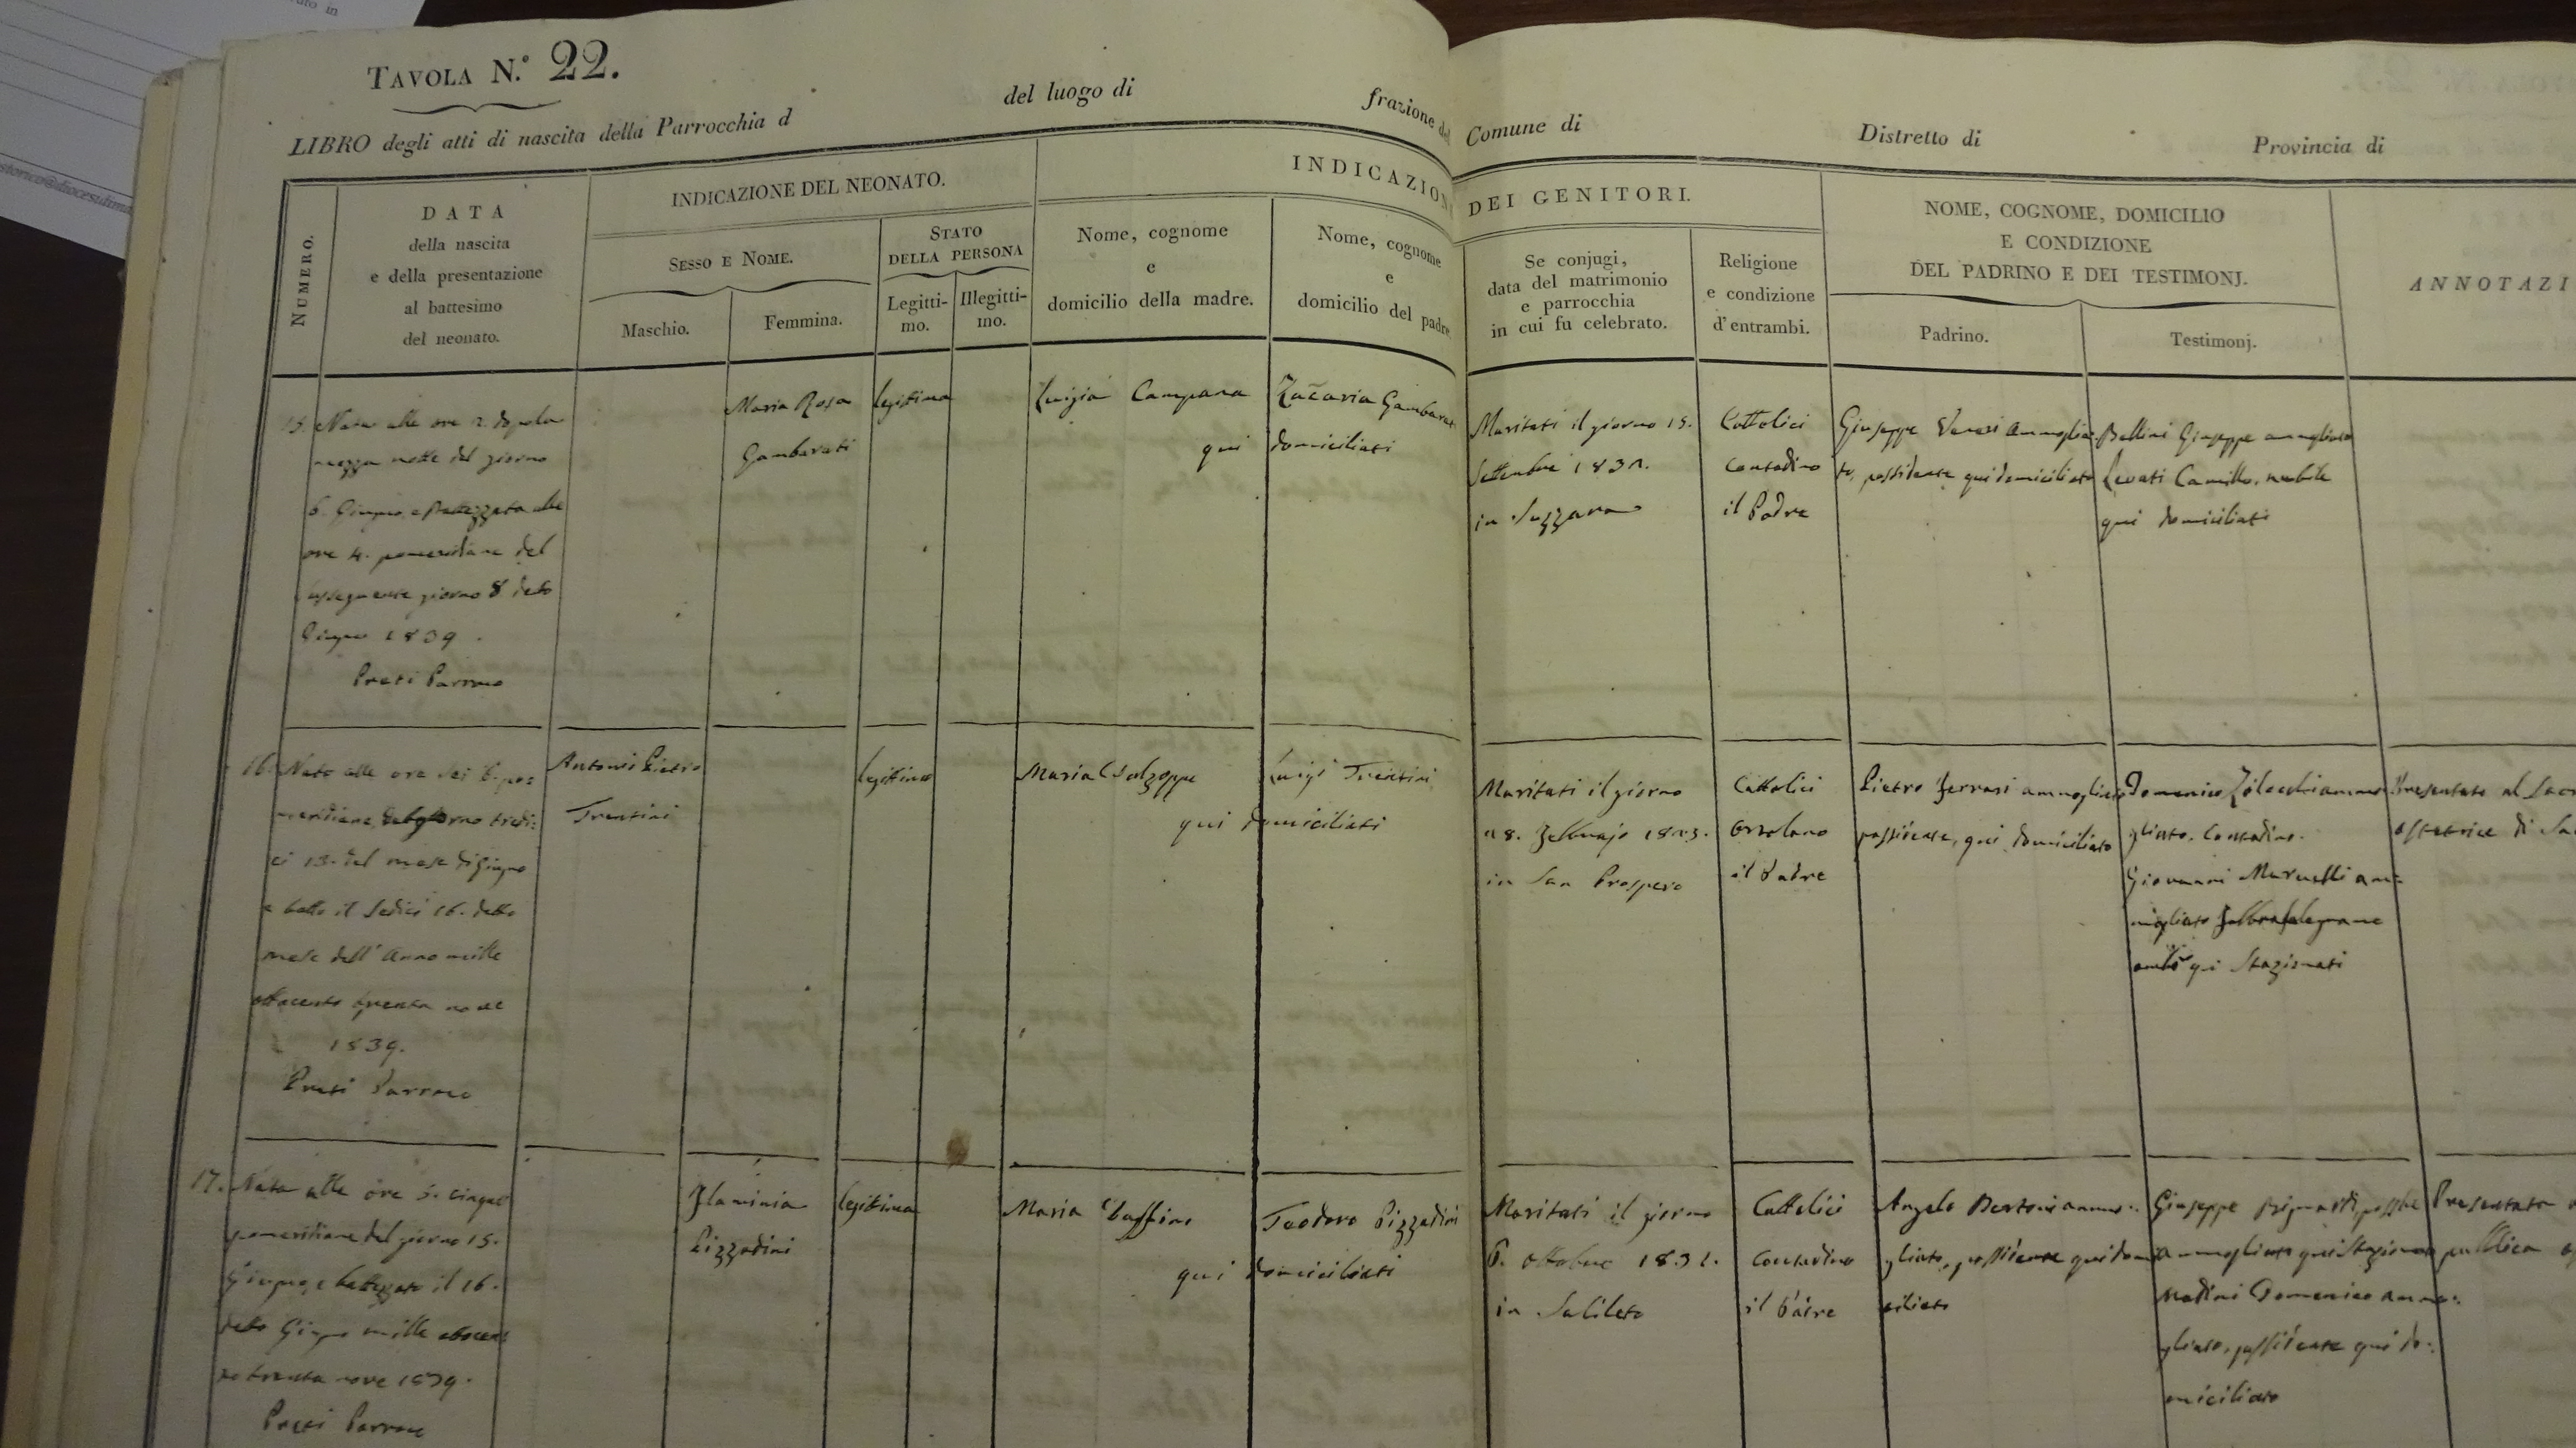 TAVOLA N.° 22.
LIBRO degli atti di nascita della Parrocchia d
del luogo di
frazione del
Comune di
Distretto di
Provincia di
NUMERO.
DATA
della nascita
e della presentazione
al battesimo
del neonato.
INDICAZIONE DEL NEONATO.
SESSO E NOME.
Maschio.
Femmina.
STATO
DELLA PERSONA
Legitti-
mo.
Illegitti-
mo.
INDICAZION
DEI GENITORI.
Nome, cognome
e
domicilio della madre.
Nome, cognome
e
domicilio del padre
Se conjugi,
data del matrimonio
e parrocchia
in cui fu celebrato.
Religione
e condizione
d'entrambi.
NOME, COGNOME, DOMICILIO
E CONDIZIONE
DEL PADRINO E DEI TESTIMONJ.
Padrino.
Testimonj.
ANNOTAZI
15. Nata alle ore 2. dopo la
mezza notte del giorno
6. Giugno, e Battezzata alle
ore 4. pomeridiane del
susseguente giorno 8 detto
Giugno 1839.
Preti Parroco
Maria Rosa
Gambarati
legittima
Luigia Campana
Zaccaria Gambarat
qui domiciliati
Maritati il giorno 15.
Settembre
in Suzzara
Cattolici
Contadino
il Padre
Giuseppe Veresi Ammoglia-
to, possidente qui domiciliato
Bellini Giuseppe ammogliato
Levati Camillo, nubile
qui domiciliati
16. Nato alle ore sei 6. po-
meridiane del giorno tredi-
ci 13. del mese di Giugno
e batto il sedici 16. detto
mese dell'Anno mille
ottocento trenta nove
1839.
Preti Parroco
Antonio Pietro
Trentini
legittimo
Maria
Luigi Trentini
qui domiciliati
Maritati il giorno
Febbrajo
in San Prospero
Cattolici
Ortolano
il Padre
Pietro Ferrari ammogliato
possidente, qui domiciliato
Domenico Zilocchi ammo-
gliato, Contadino.
Giovanni am-
mogliato falegname
ambi qui Stazionati
Presentato al Sacr
ostetrice di Sa
17. Nata alle ore 5. cinque
pomeridiane del giorno 15.
Giugno, e battezzata il 16.
detto Giugno mille ottocen
to trenta nove 1839.
Preti Parroco
Flaminia
Pizzadini
legittima
Maria
Teodoro Pizzadini
qui domiciliati
Maritati il giorno
6. ottobre
in Salileto
Cattolici
Contadino
il Padre
Angelo Bertoni ammo-
gliato, possidente qui domi
ciliato
Giuseppe
ammogliato qui Stazionato
Domenico ammo-
gliato, possidente qui do-
miciliato
Presentata
pubblica